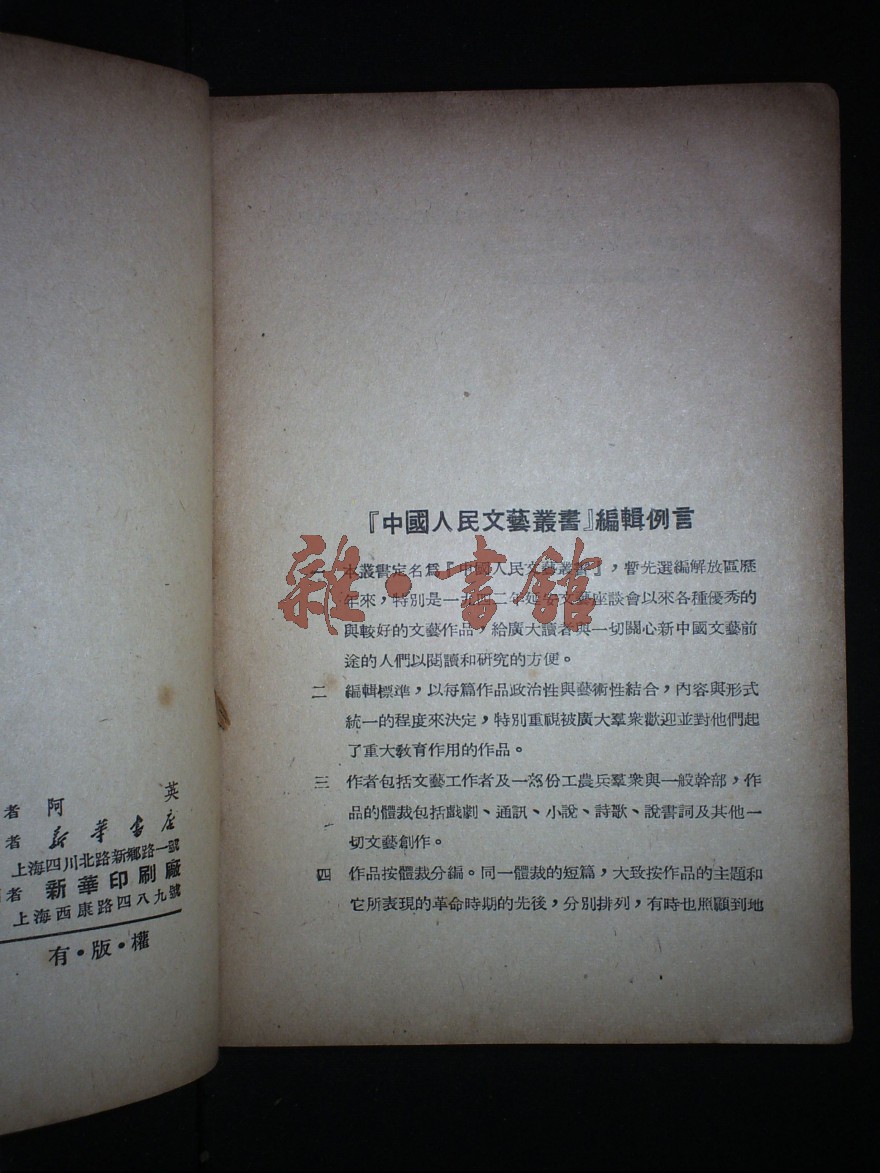 『中國人民文藝叢書』編輯例言
一 本叢書定名爲『中國人民文藝叢書』，暫先選編解放區歷
年來，特別是一九四二年延安文藝座談會以來各種優秀的
與較好的文藝作品，給廣大讀者與一切關心新中國文藝前
途的人們以閱讀和研究的方便。
二 編輯標準，以每篇作品政治性與藝術性結合，內容與形式
統一的程度來決定，特別重視被廣大羣衆歡迎並對他們起
了重大教育作用的作品。
三 作者包括文藝工作者及一部份工農兵羣衆與一般幹部，作
品的體裁包括戲劇、通訊、小說、詩歌、說書詞及其他一
切文藝創作。
四 作品按體裁分編。同一體裁的短篇，大致按作品的主題和
它所表現的革命時期的先後，分別排列，有時也照顧到地
者 阿 英
者 新華書店
上海四川北路新鄉路一號
者 新華印刷廠
上海西康路四八九號
有·版·權
雜·書館